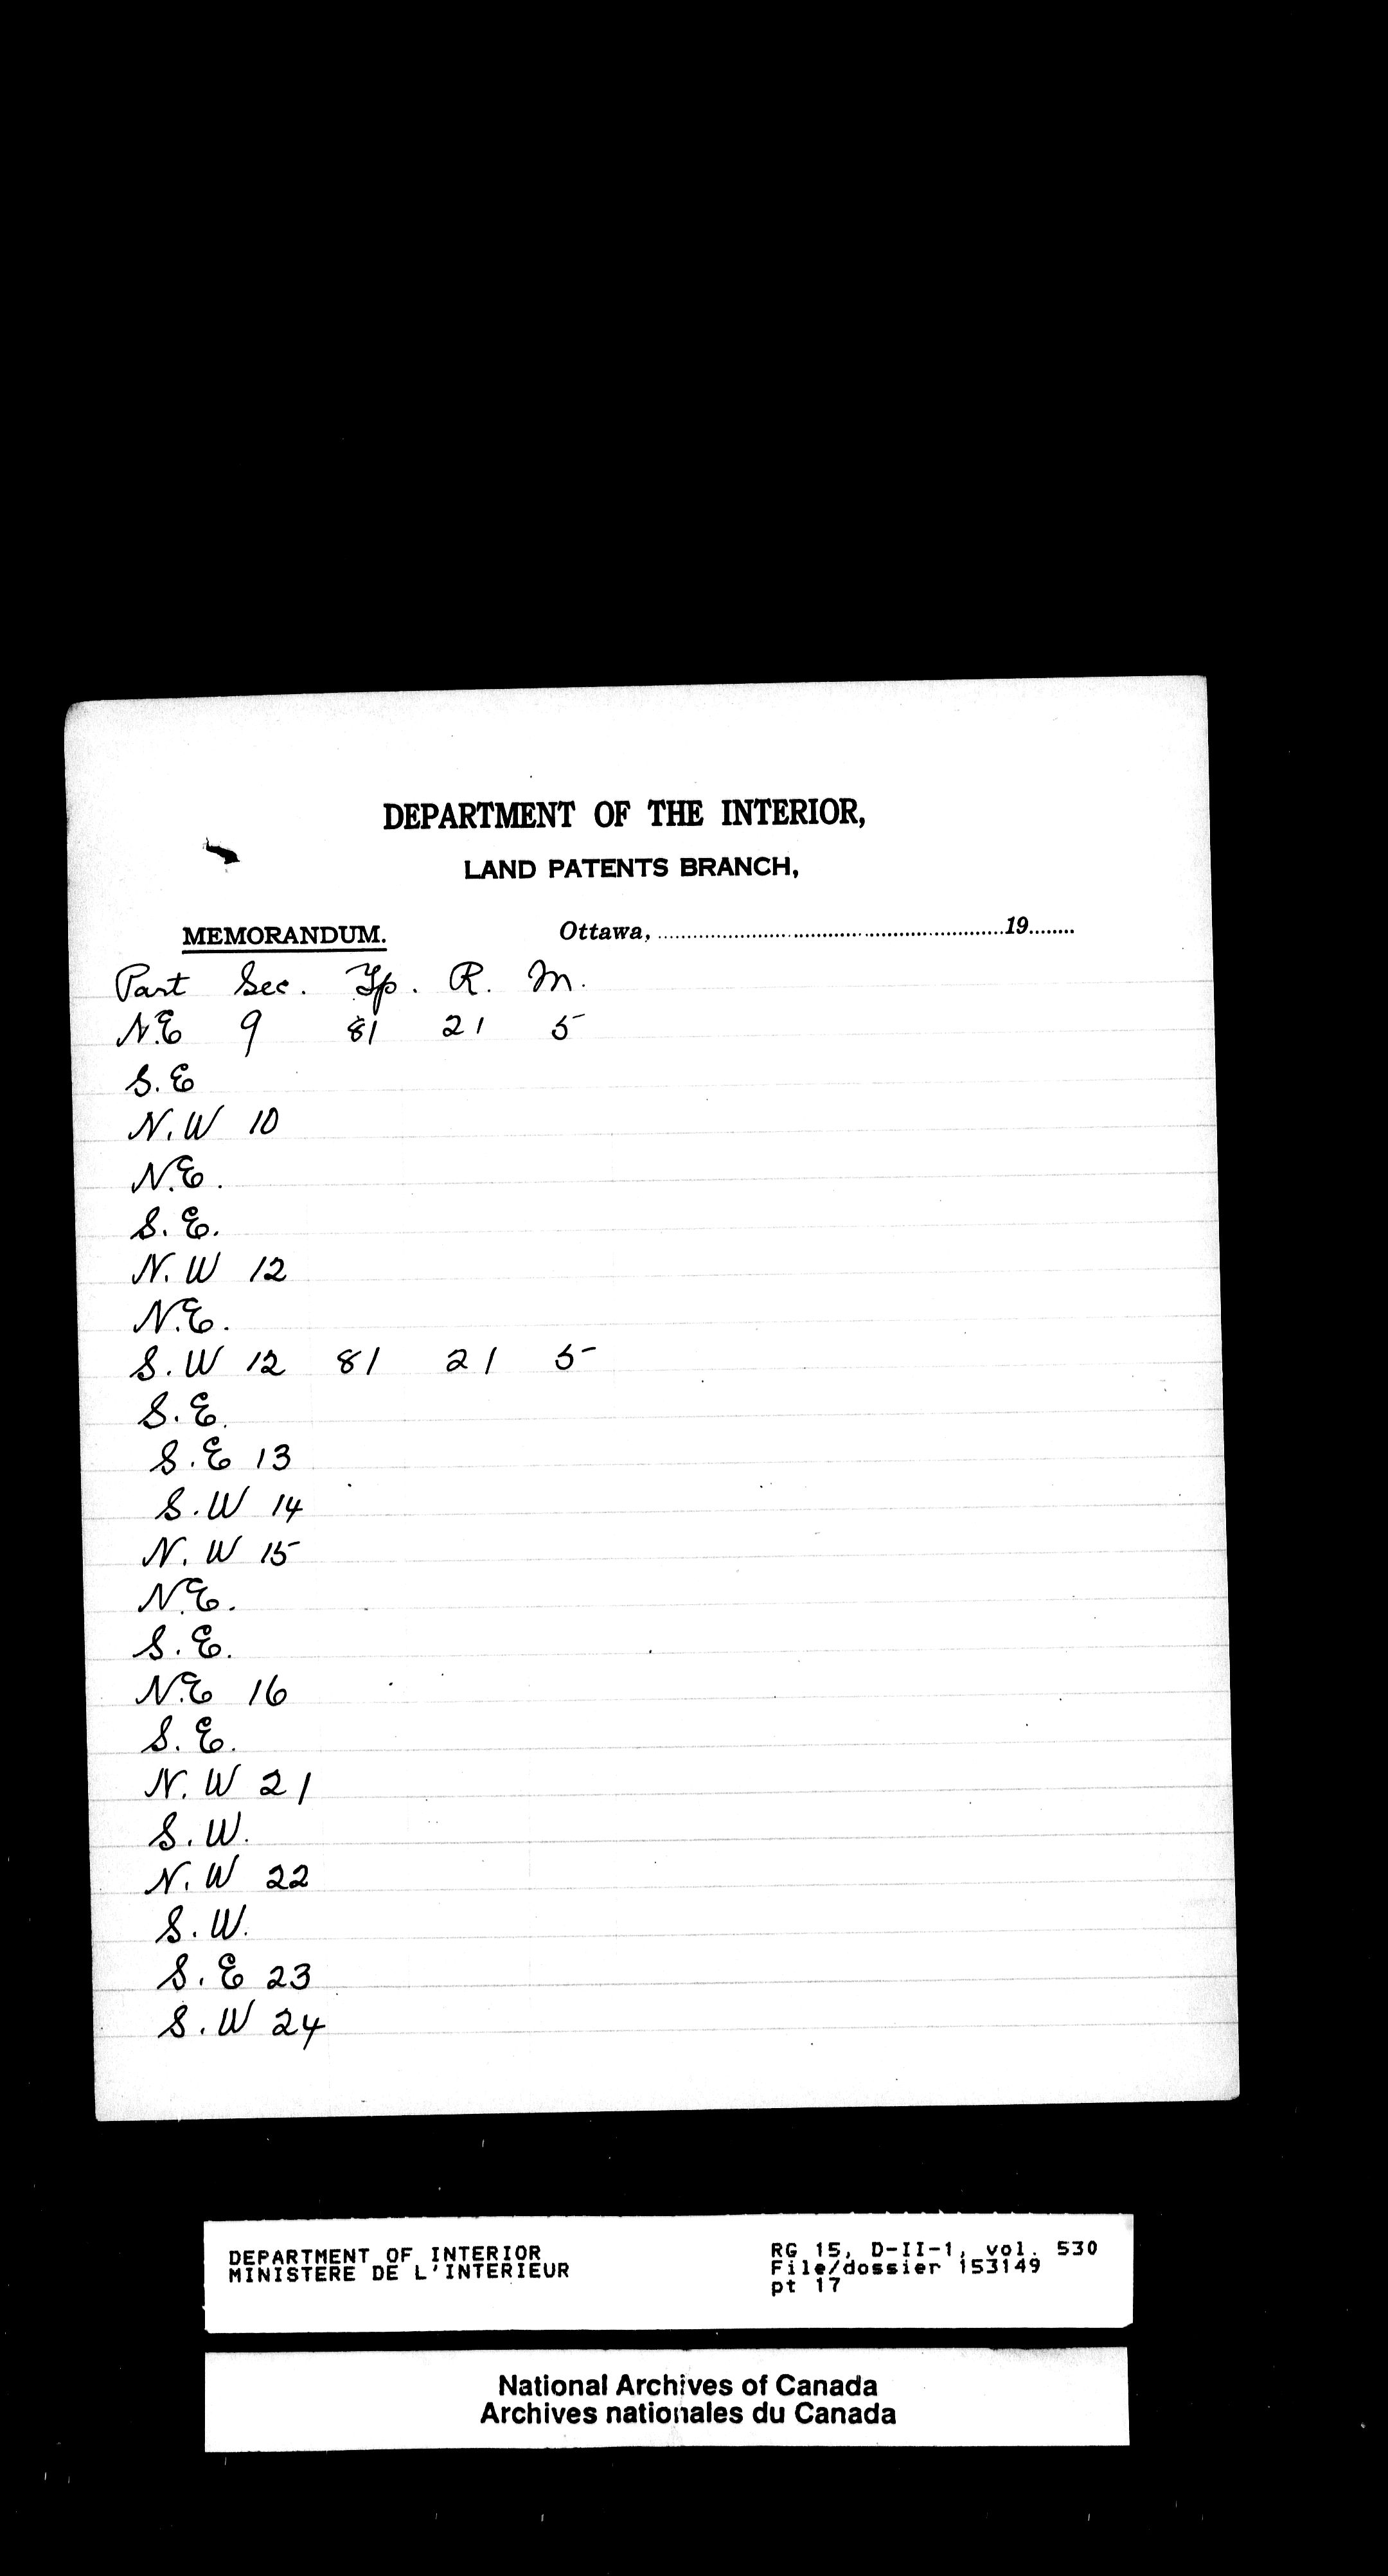 DEPARTMENT OF THE INTERIOR,
LAND PATENTS BRANCH,
MEMORANDUM. Ottawa, ............19........
Part Sec. Tp. R. M.
N.E 9 81 21 5
S.E
N.W 10
N.E.
S.E.
N.W 12
N.E.
S.W 12 81 21 5
S.E.
S.E 13
S.W 14
N.W 15
N.E.
S.E.
N.E 16
S.E.
N.W 21
S.W.
N.W 22
S.W.
S.E 23
S.W 24
DEPARTMENT OF INTERIOR RG 15, D-II-1, vol. 530
MINISTERE DE L'INTERIEUR File/dossier 153149
pt 17
National Archives of Canada
Archives nationales du Canada